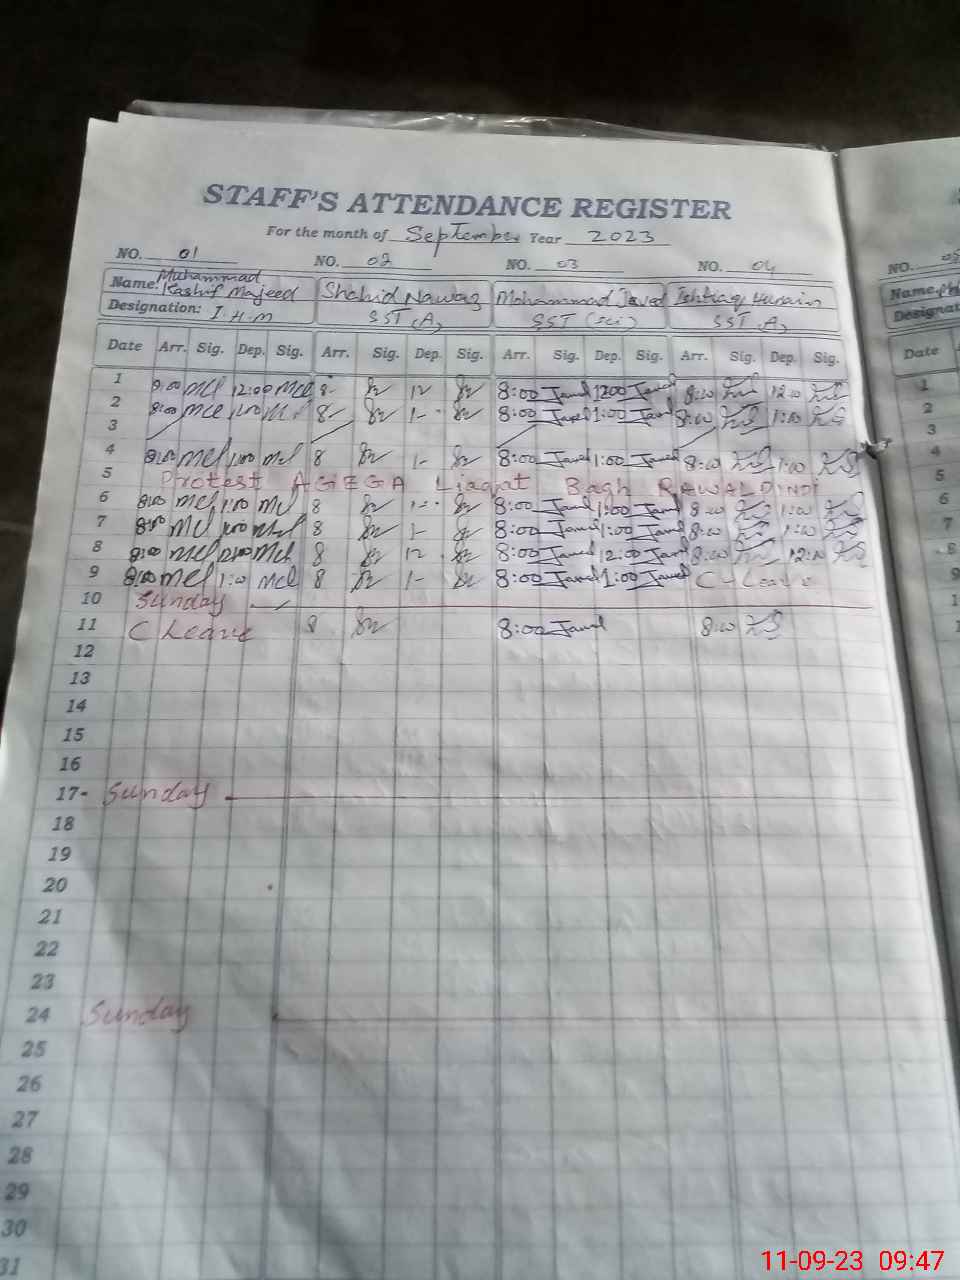 STAFF'S ATTENDANCE REGISTER
For the month of September Year 2023
NO. 01 NO. 02 NO. 03 NO. 04 NO. 05
Name. Muhammad Kashif Majeed Shahid Nawaz Mohammad Javed Ishtiaq Hussain Name.
Designation: I.H.M SST (A) SST (Sci) SST (A) Designat
Date Arr. Sig. Dep. Sig. Arr. Sig. Dep. Sig. Arr. Sig. Dep. Sig. Arr. Sig. Dep. Sig. Date
1 8:00 12:00 8 12 8:00 Javed 12:00 Javed 8:00 12:00 1
2 8:00 1:00 8 1- 8:00 Javed 1:00 Javed 8:00 1:00 2
3 3
4 8:00 1:00 8 1- 8:00 Javed 1:00 Javed 8:00 1:00 4
5 Protest AGEGA Liaqat Bagh RAWALPINDI 5
6 8:00 1:00 8 1- 8:00 Javed 1:00 Javed 8:00 1:00 6
7 8:00 1:00 8 1- 8:00 Javed 1:00 Javed 8:00 1:00 7
8 8:00 12:00 8 12 8:00 Javed 12:00 Javed 8:00 12:00 8
9 8:00 1:00 8 1- 8:00 Javed 1:00 Javed C-Leave 9
10 Sunday
11 C Leave 8 8:00 Javed 8:00
12
13
14
15
16
17- Sunday
18
19
20
21
22
23
24 Sunday
25
26
27
28
29
30
31
11-09-23 09:47